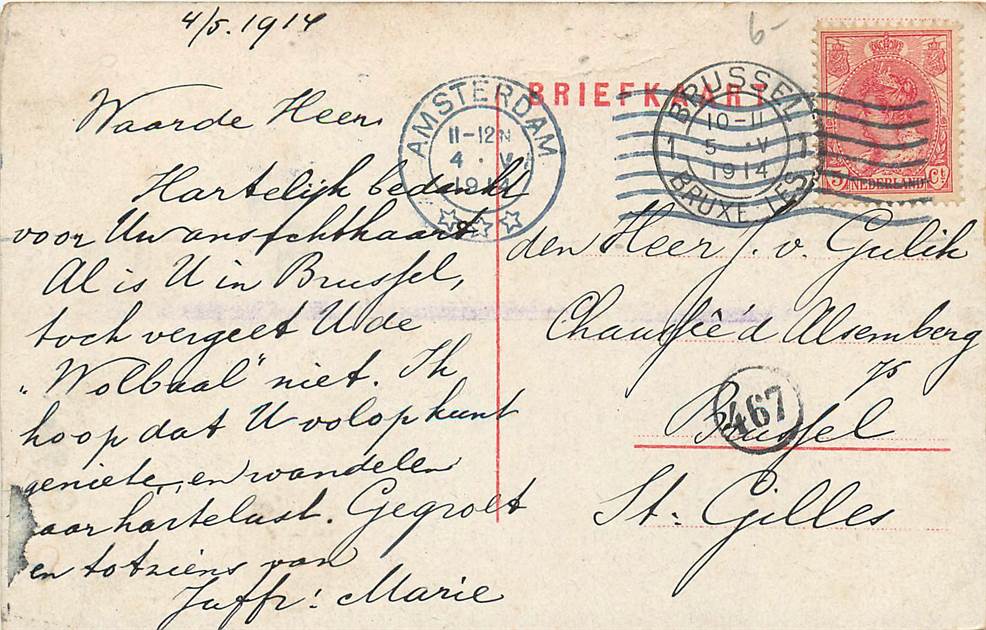 4/5. 1914
6-
Waarde Heer,
Hartelijk bedankt
voor Uw ansichtkaart
Al is U in Brussel,
toch vergeet U de
"Wolbaal" niet. Ik
hoop dat U volop kunt
geniete, en wandelen
naar hartelust. Gegroet
en tot ziens van
Juffr: Marie
BRIEFKAART
AMSTERDAM
11-12 N
4 · V
1914
BRUSSEL
10-11
1 5 · V 1
1914
BRUXELLES
5 NEDERLAND Ct
den Heer J. v. Gulik
Chaussée d Alsemberg
75
Brussel
467
St. Gilles